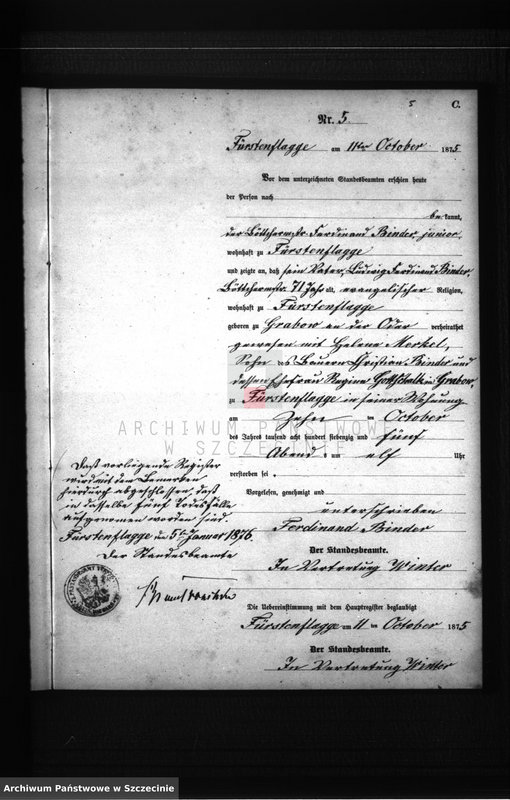 5 C.
Nr. 5
Fürstenflagge am 11ten October 1875
Vor dem unterzeichneten Standesbeamten erschien heute
der Person nach
bekannt,
der Böttchermstr. Ferdinand Binder junior
wohnhaft zu Fürstenflagge
und zeigte an, daß sein Vater, Ludwig Ferdinand Binder,
Böttchermstr. 71 Jahr alt, evangelischer Religion,
wohnhaft zu Fürstenflagge
geboren zu Grabow an der Oder verheirathet
gewesen mit Helene Merkel,
Sohn des Bauern Christian Binder und
dessen Ehefrau Regina Gottschalk in Grabow
zu Fürstenflagge in seiner Wohnung
am Zehn ten October
des Jahres tausend acht hundert siebenzig und fünf
Abends um elf Uhr
verstorben sei.
Vorgelesen, genehmigt und
unterschrieben
Ferdinand Binder
Der Standesbeamte.
In Vertretung Winter
Daß vorliegende Register
wird mit dem Bemerken
hierdurch abgeschlossen, daß
in dasselbe fünf Todesfälle
aufgenommen worden sind.
Fürstenflagge den 5ten Januar 1876.
Der Standesbeamte
Die Uebereinstimmung mit dem Hauptregister beglaubigt
Fürstenflagge am 11 ten October 1875
Der Standesbeamte.
In Vertretung Winter
ARCHIWUM PAŃSTWOWE
W SZCZECINIE
Archiwum Państwowe w Szczecinie